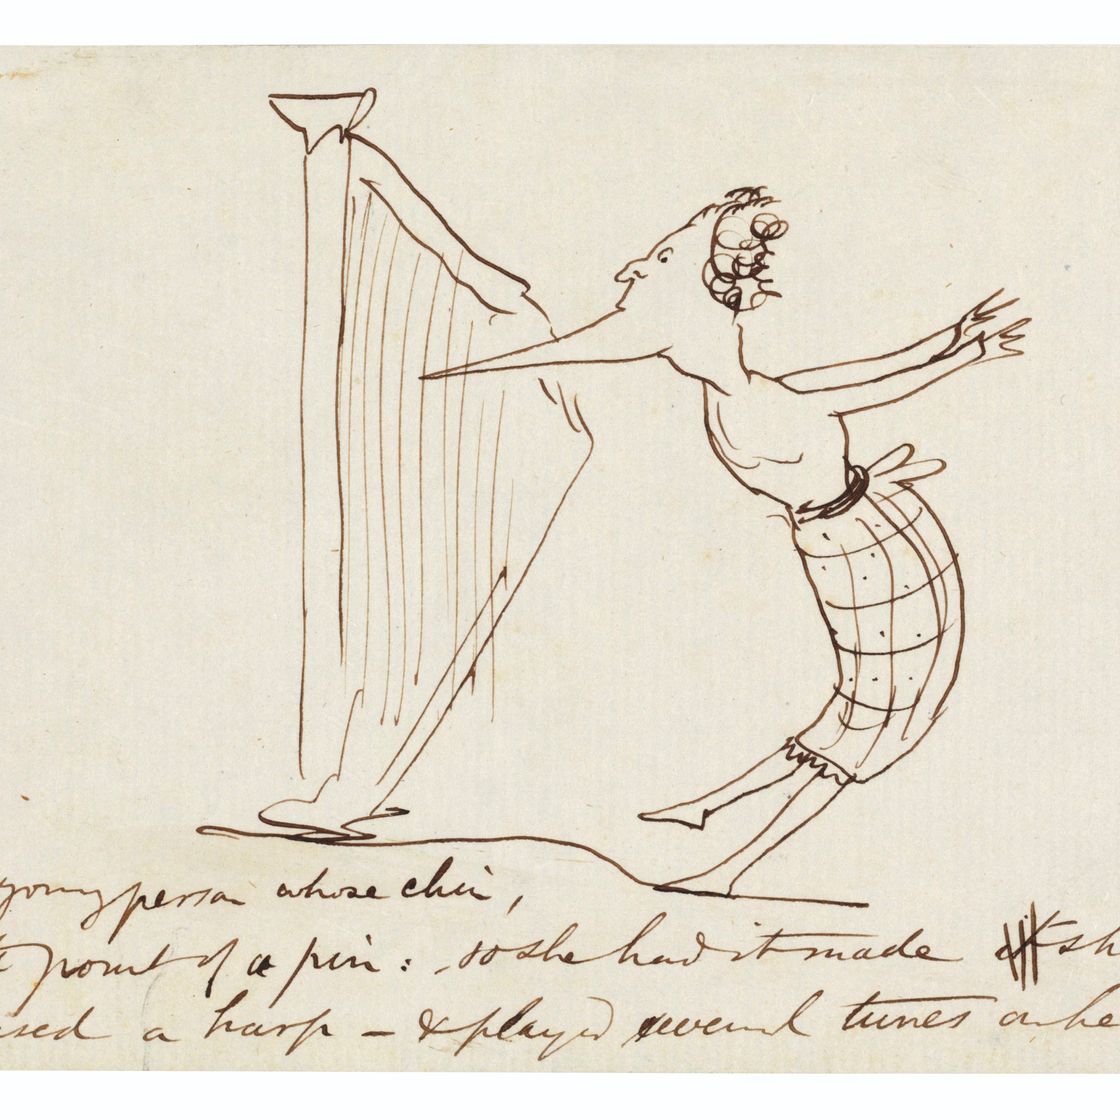 young person whose chin,
point of a pin: so she had it made sh
a harp – & played several tunes